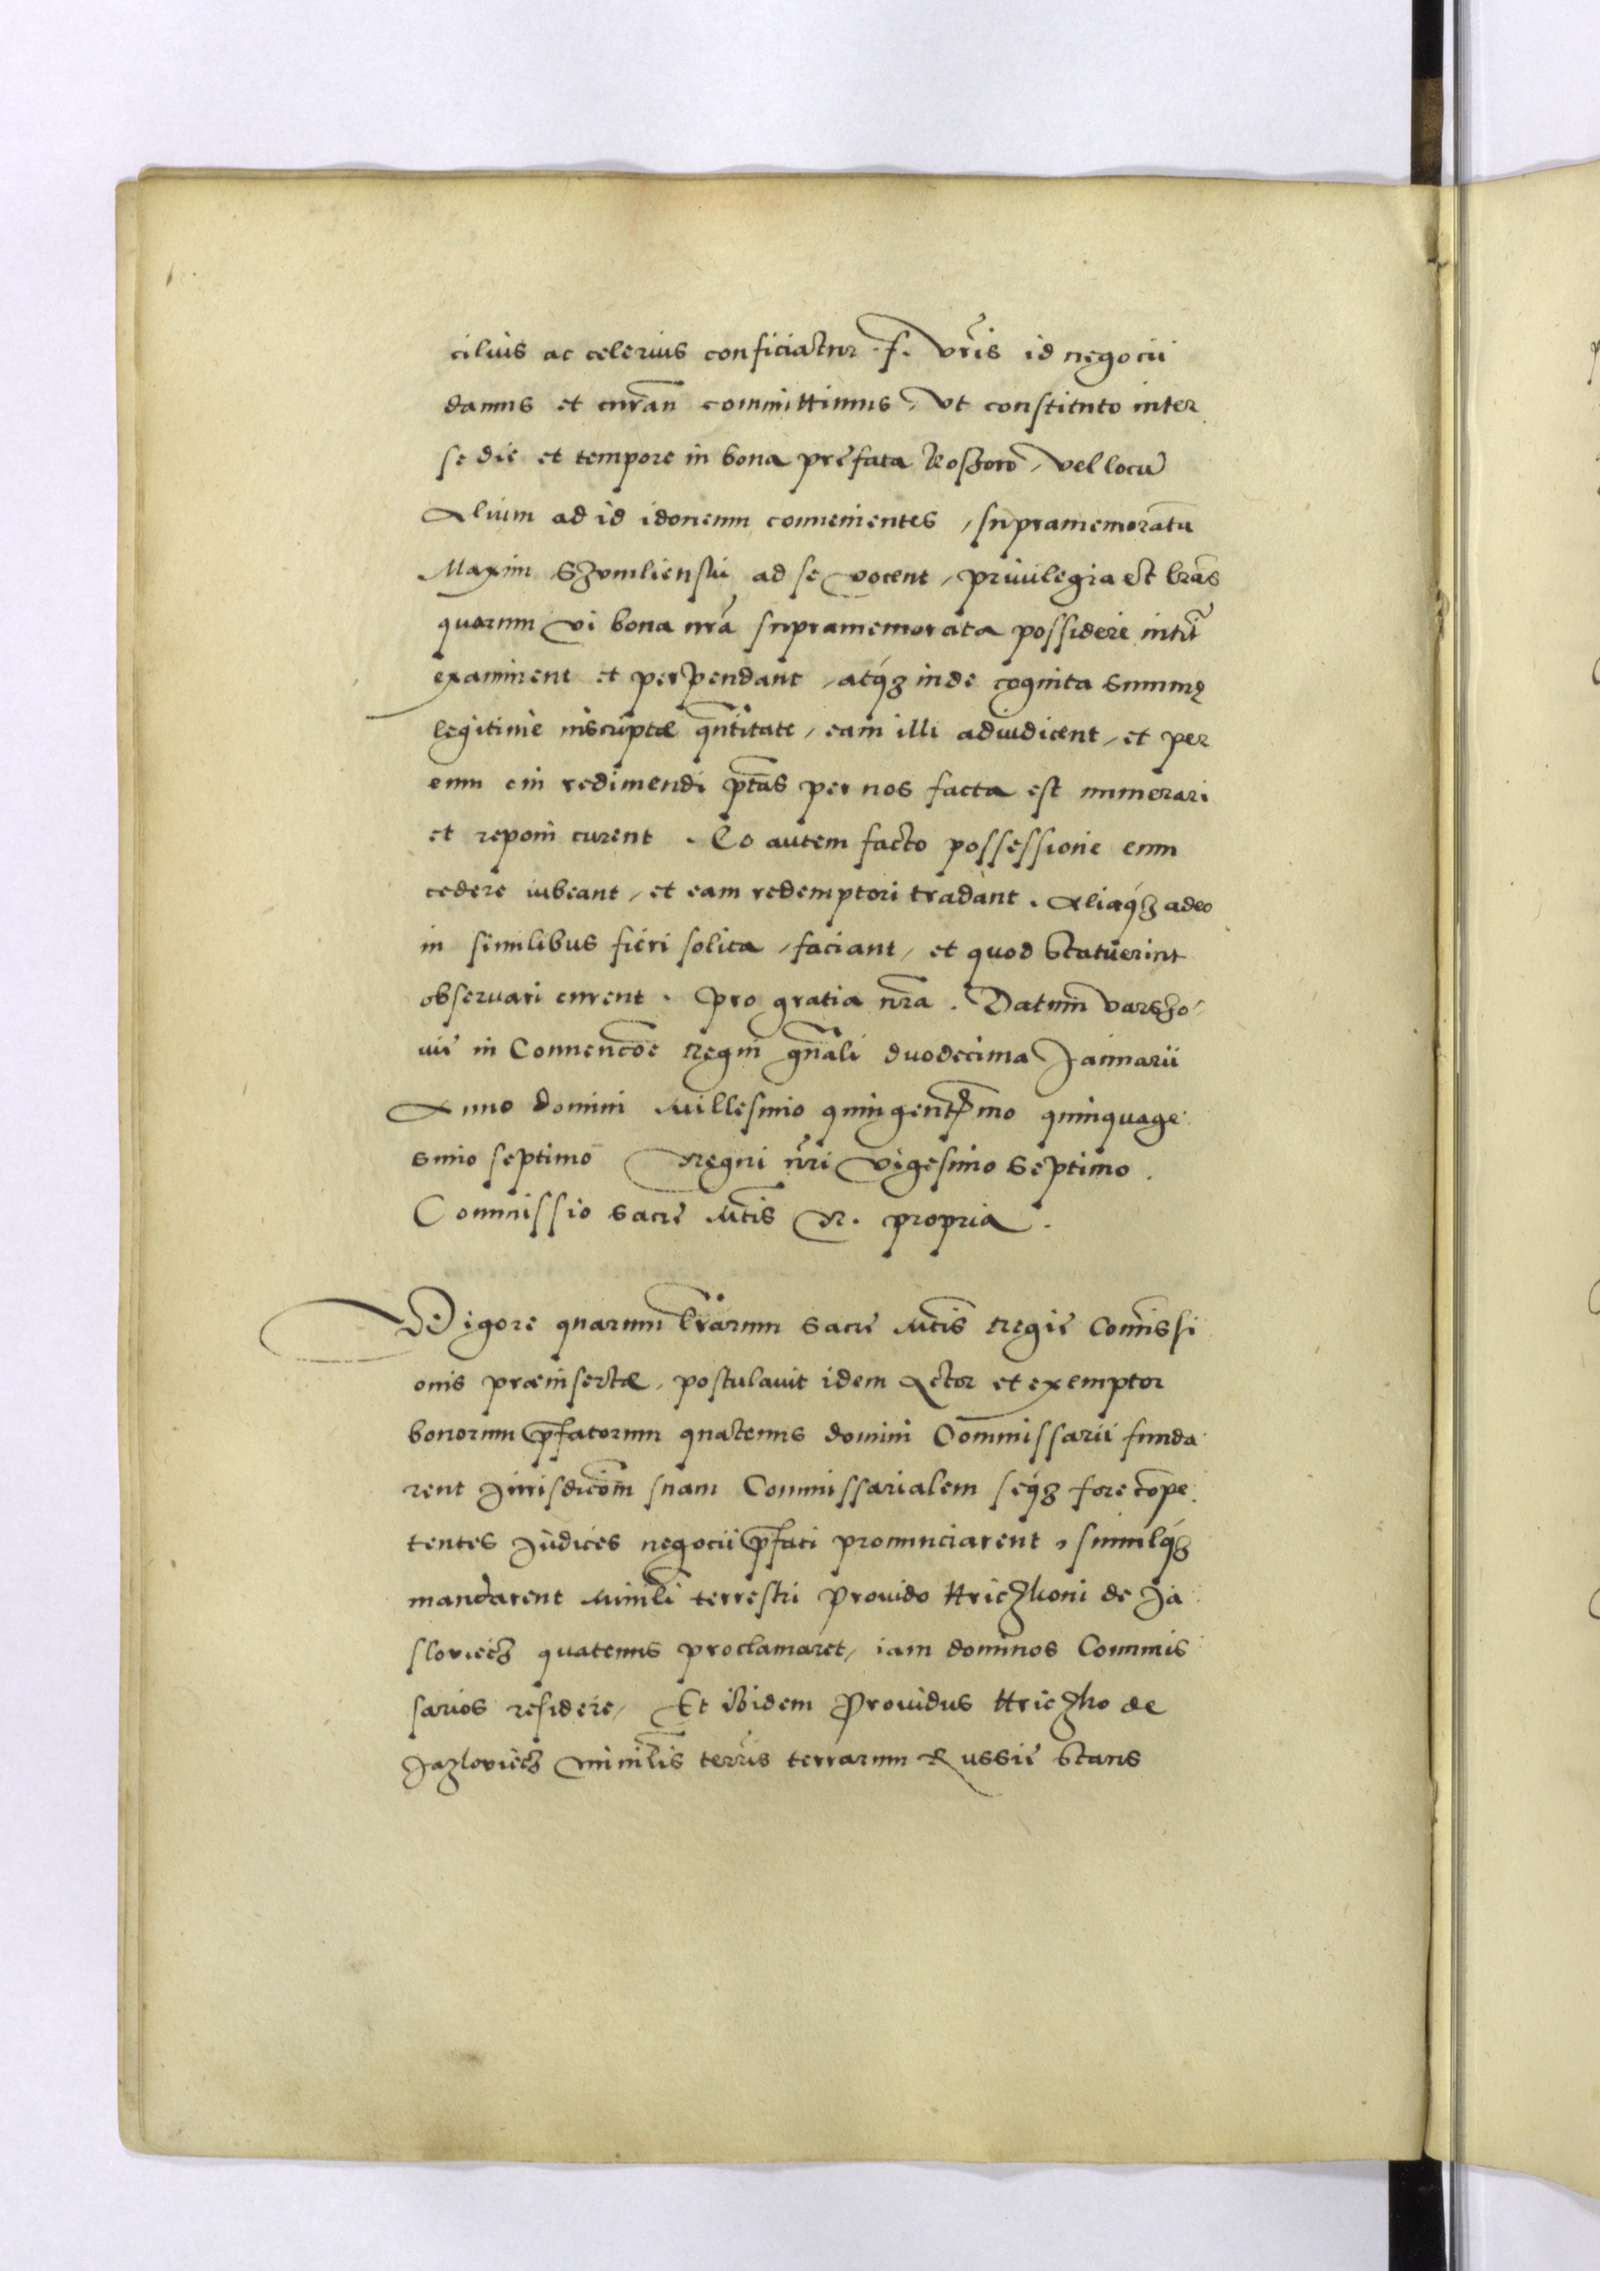 cilius ac celerius conficiatur . f. vr̃is id negocii
damus et curam̃ committimus, vt constituto inter
se die et tempore in bona prefata Koszoro, vel locũ
Alium ad id idoneum conuenientes, supramemoratũ
Maxim Szumlienski ad se vocent, priuilegia et lr̃as
quorum vi bona nr̃a supramemorata possidere intit̃
examinent et perpendant, atq́ʒ inde cognita summę
legitime inscriptæ qñtitate, eam illi adiudicent, et per
eum cui redimendi pt̃as per nos facta est numerari
et reponi curent . Eo autem facto possessione eum
cedere iubeant, et eam redemptori tradant . Aliaq́ʒ adeo
in similibus fieri solita, faciant, et quod statuerint
obseruari curent . pro gratia nr̃a . Datum varszo-
uie in Conuencõe Regni gñali duodecima Januarii
Anno domini Millesimo quingentesimo quinquage
simo septimo Regni nr̃i vigesimo septimo .
Commissio sacre Mt̃is R. propria .
Vigore quarum lr̃arum sacre Mt̃is Regie Comissi
onis præinsertæ, postulauit idem Actor et exemptor
bonorum p̃fatorum quatenus domini Commissarii funda
rent Jurisdicõm suam Commissarialem seq́ʒ fore cõpe
tentes Judices negocii p̃fati pronunciarent, simulq́ʒ
mandarent Minlĩ terrestri Prouido Hriczkoni de Ja
sloviecz quatenus proclamaret, iam dominos Commis
sarios residere, Et ibidem Prouidus Hriczko de
Jazloviecz minlĩs terrĩs terrarum Russie stans